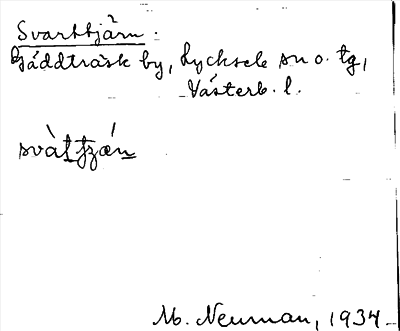 Svarttjärn.
Gäddträsk by, Lycksele sn o. tg,
Västerb. l.
M. Neuman, 1934